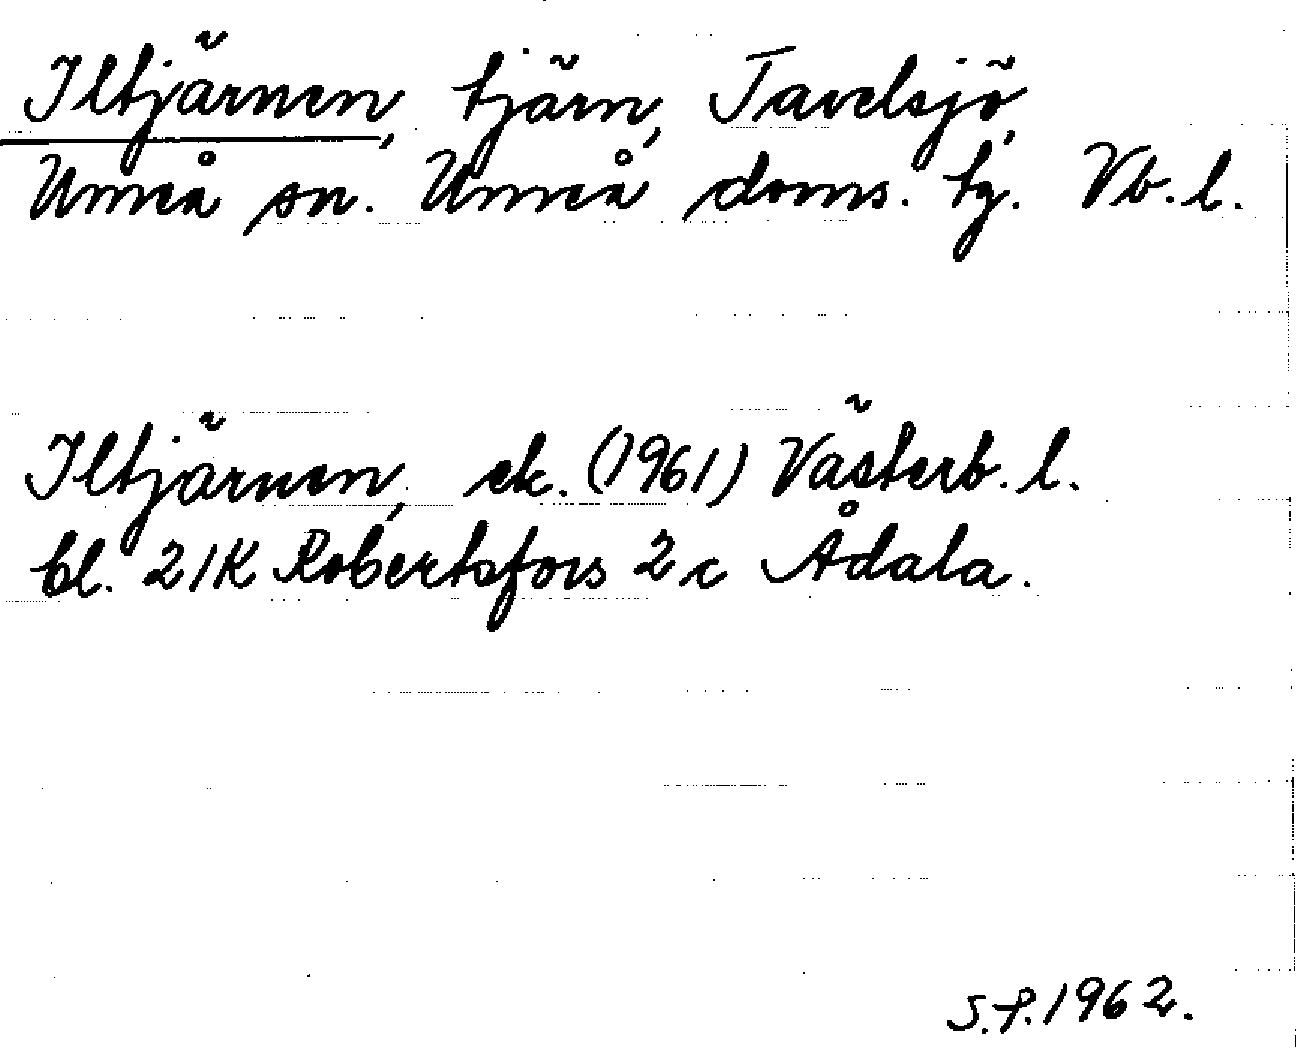 Iltjärnen, tjärn, Tavelsjö,
Umeå sn. Umeå doms. tg. Vb. l.
Iltjärnen, ek. (1961) Västerb. l.
bl. 21K Robertsfors 2 c Ådala.
S.P. 1962.